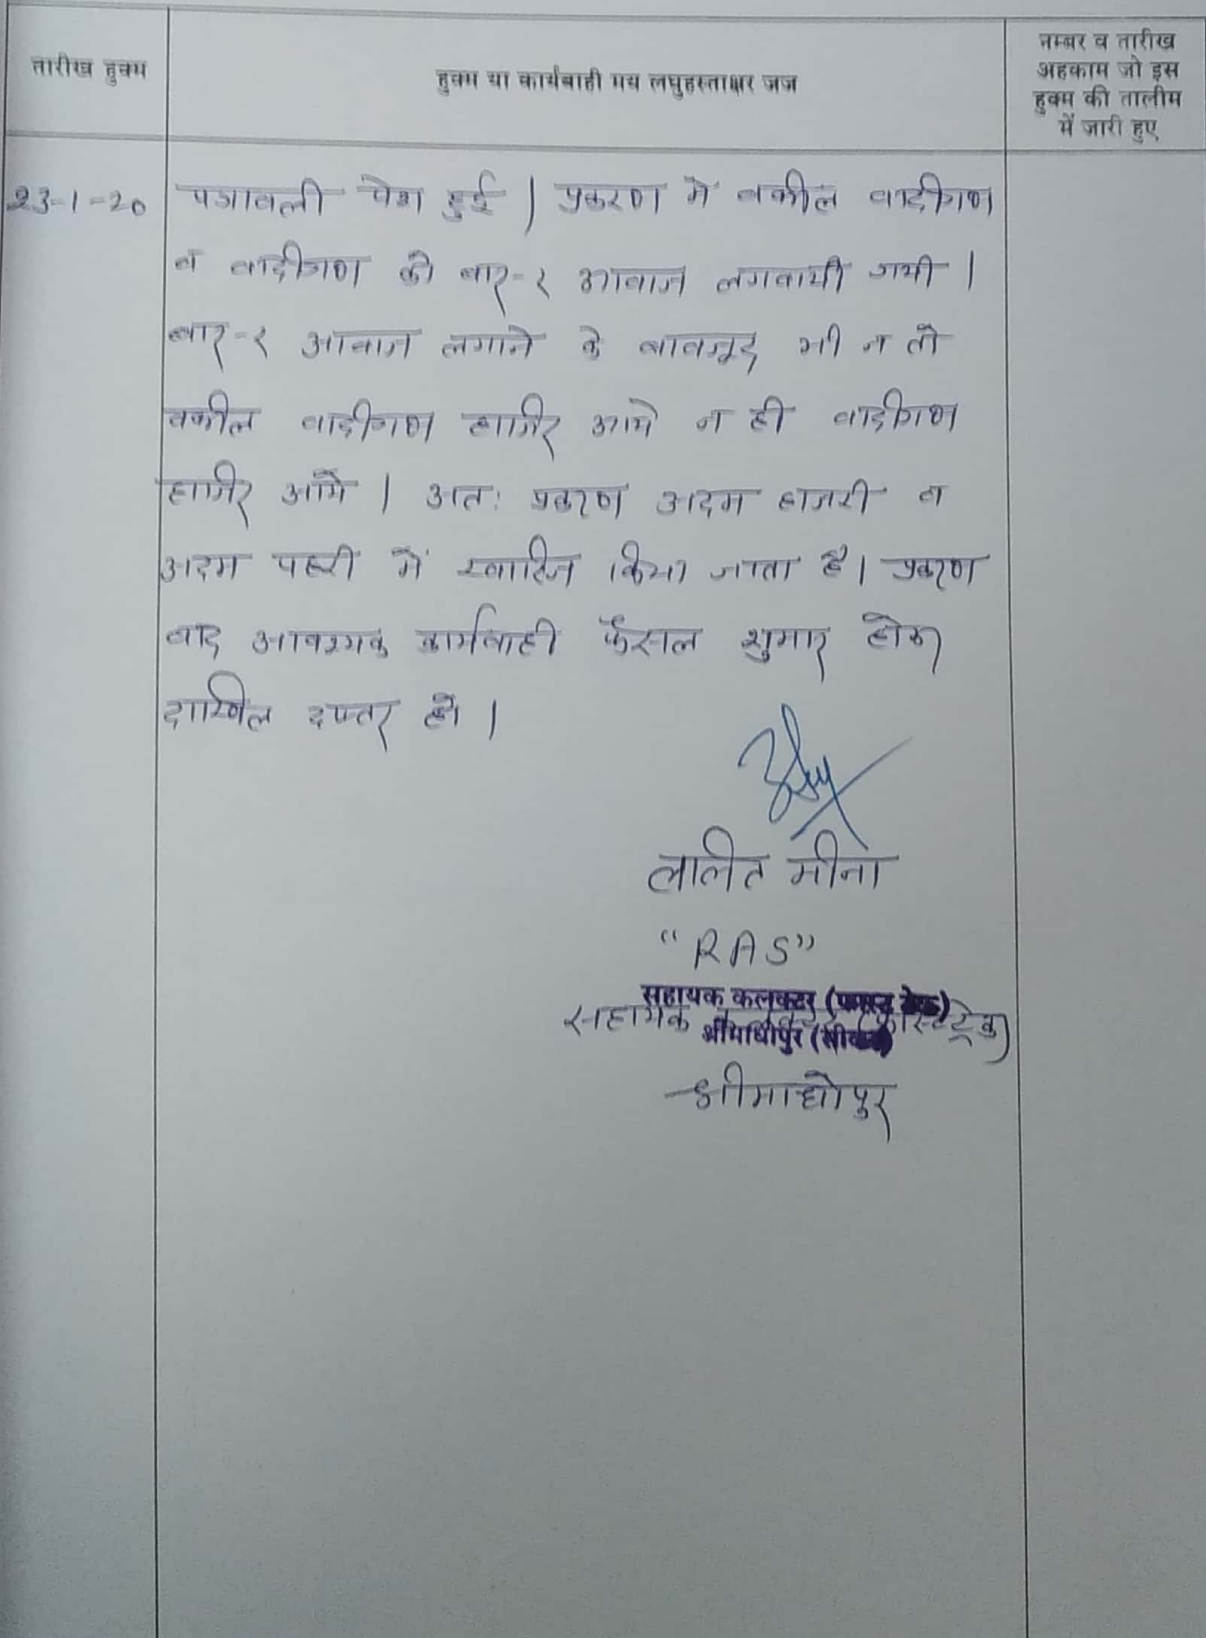 तारीख हुक्म
हुक्म या कार्यवाही मय लघुहस्ताक्षर जज
नम्बर व तारीख
अहकाम जो इस
हुक्म की तालीम
में जारी हुए
23-1-20
पत्रावली पेश हुई | प्रकरण मे वकील वादीगण
व वादीगण को बार-२ आवाज लगवायी गयी |
बार-२ आवाज लगाने के बावजूद भी न तो
वकील वादीगण हाजिर आये न ही वादीगण
हाजिर आये | अतः प्रकरण अदम हाजरी व
अदम पैरवी में खारिज किया जाता है | प्रकरण
बाद आवश्यक कार्यवाही फैसल शुमार होकर
दाखिल दफ्तर हो |
ललित मीना
"RAS"
सहायक कलक्टर (फास्ट ट्रेक)
सहायक (फास्ट ट्रेक)
श्रीमाधोपुर (सीकर)
श्रीमाधोपुर